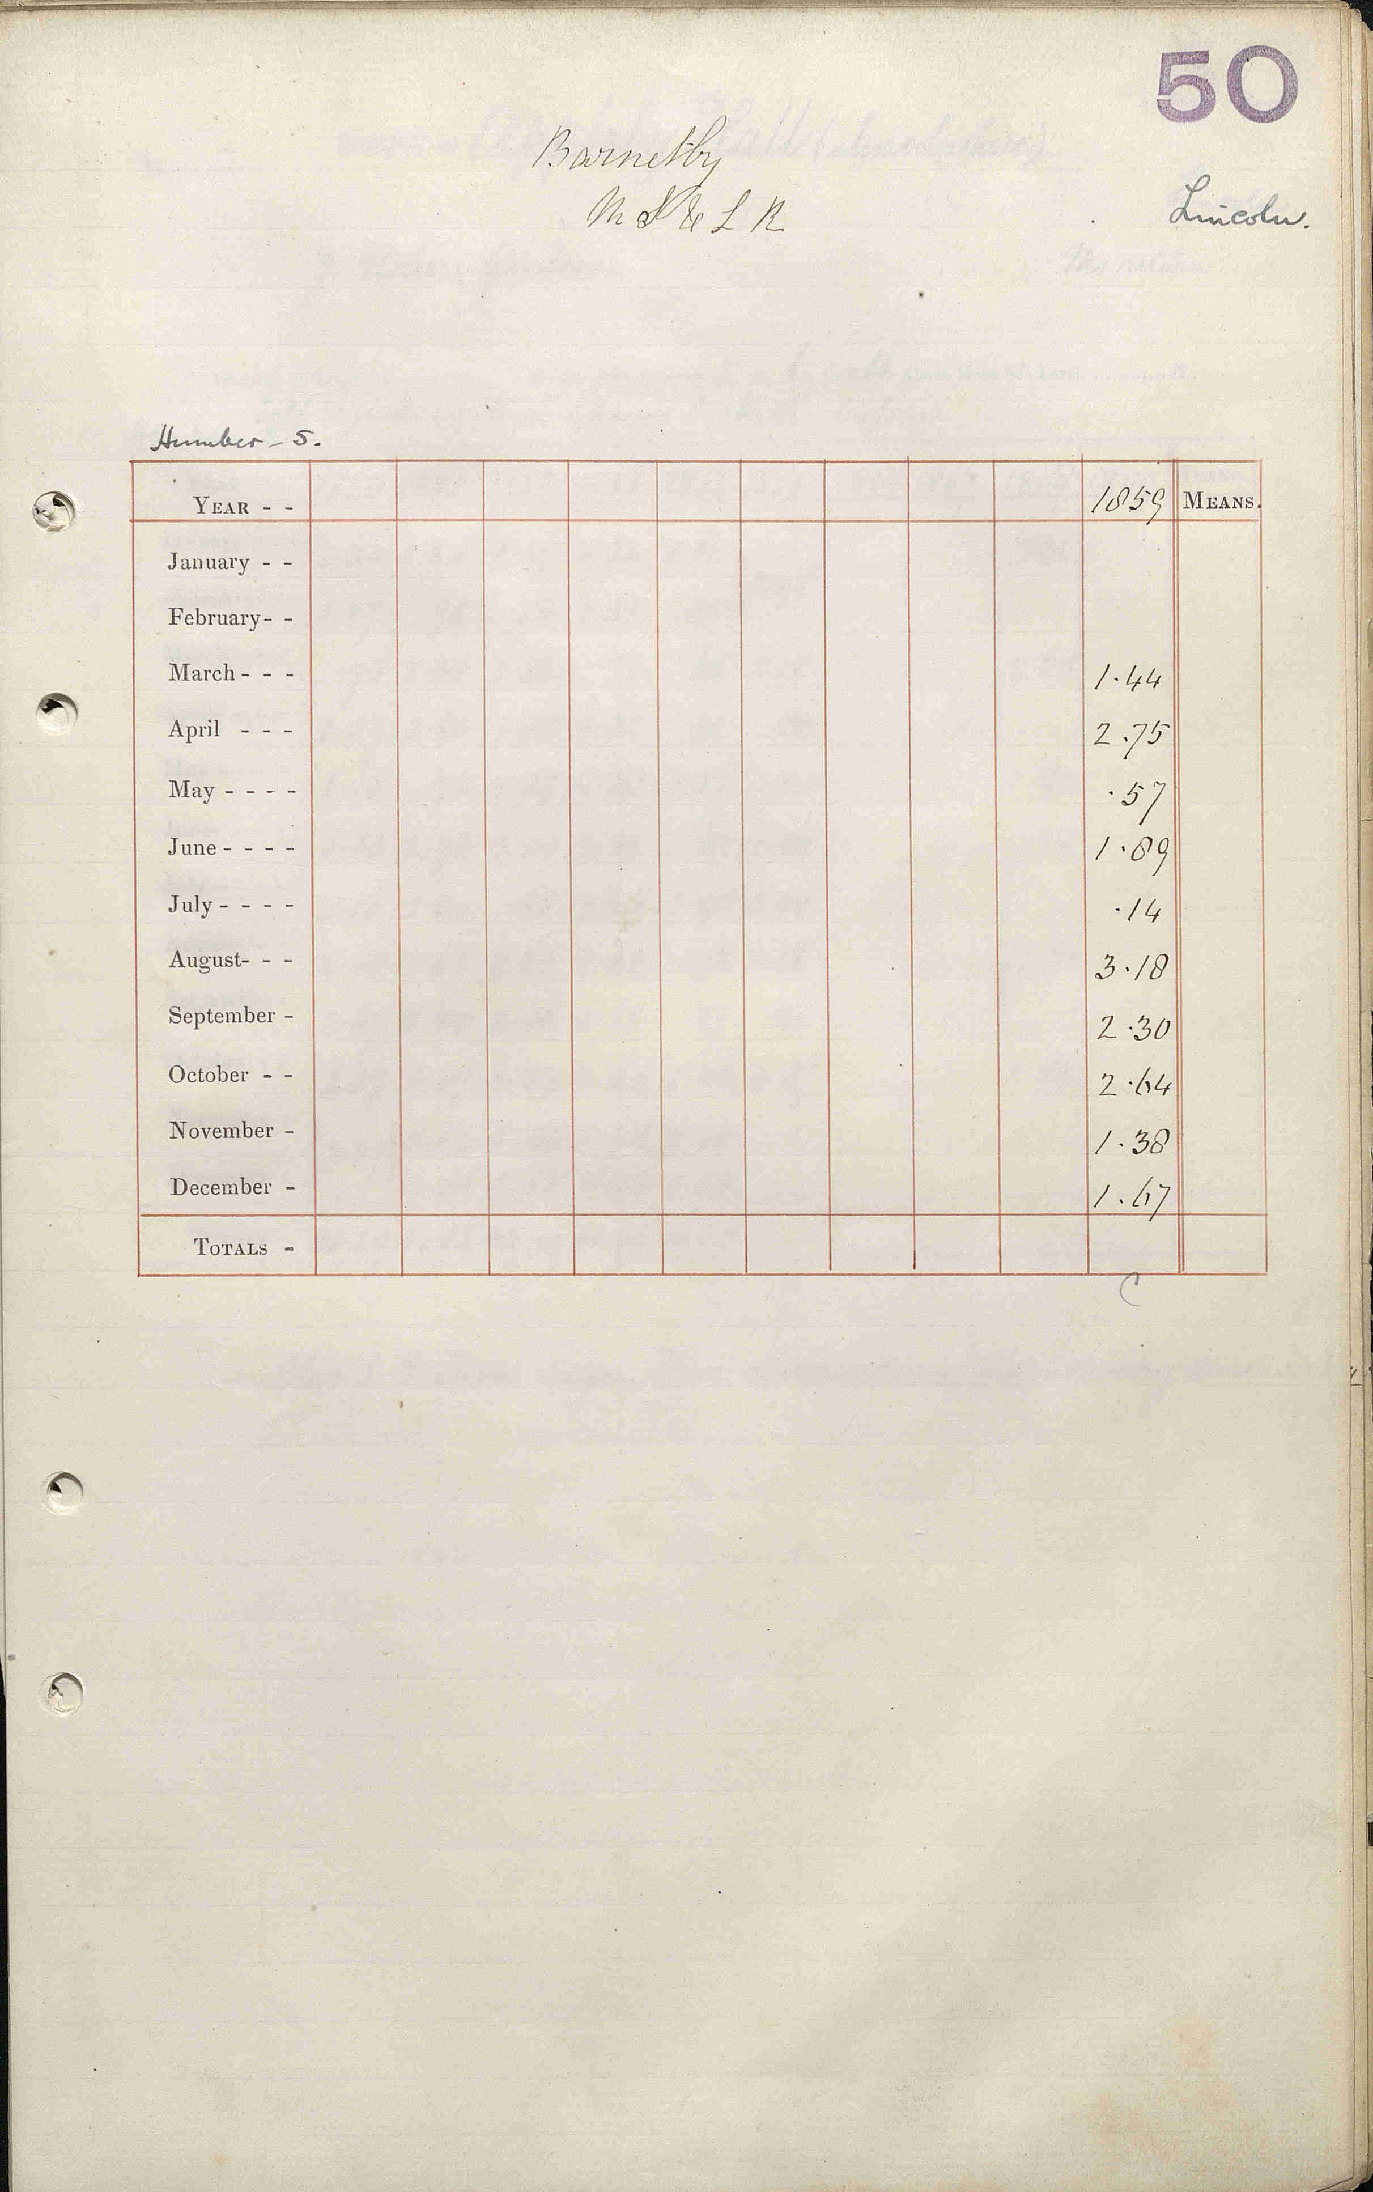 50
Barnetby
M S & L R
Lincoln.
Humber - S.
YEAR - - 1859 MEANS.
January - -
February- -
March- - - 1.44
April - - - 2.75
May - - - - .57
June- - - - 1.89
July- - - - .14
August- - - 3.18
September - 2.30
October - - 2.64
November - 1.38
December - 1.67
TOTALS -
C